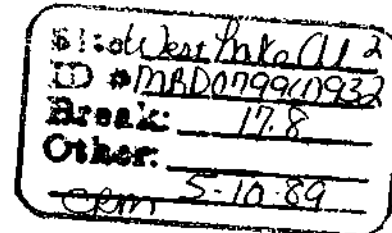 Site: West Lake OU 2
ID #MOD079900932
Break: 17.8
Other:
5-10-89